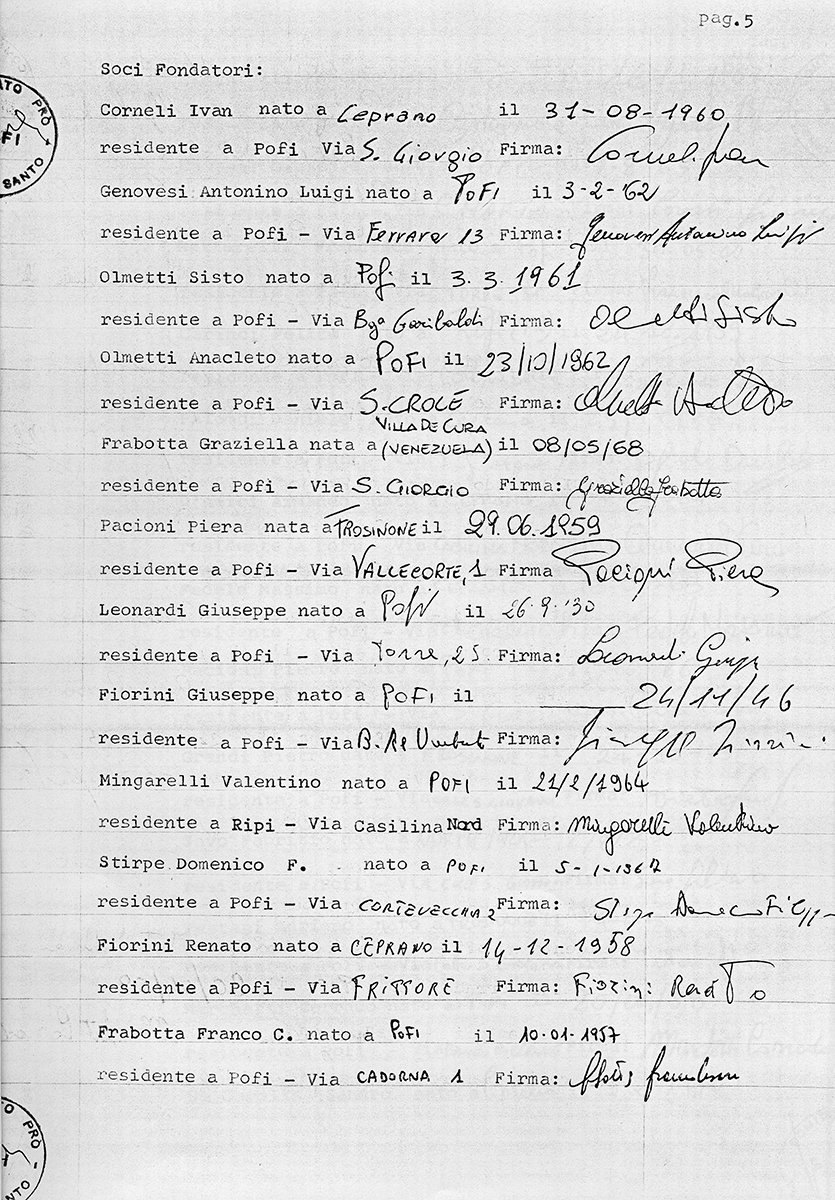 pag.5
Soci Fondatori:
Corneli Ivan nato a Ceprano il 31-08-1960
residente a Pofi Via S. Giorgio Firma: Corneli Ivan
Genovesi Antonino Luigi nato a POFI il 3-2-'62
residente a Pofi - Via Ferrara 13 Firma: Genovesi Antonino Luigi
Olmetti Sisto nato a Pofi il 3.3.1961
residente a Pofi - Via Garibaldi Firma: Olmetti Sisto
Olmetti Anacleto nato a POFI il 23/10/1962
residente a Pofi - Via S. CROCE Firma:
VILLA DE CURA
Frabotta Graziella nata a (VENEZUELA) il 08/05/68
residente a Pofi - Via S. GIORGIO Firma: Graziella Frabotta
Pacioni Piera nata a FROSINONE il 29.06.1959
residente a Pofi - Via VALLECORTE, 1 Firma Pacioni Piera
Leonardi Giuseppe nato a Pofi il 26.9.'30
residente a Pofi - Via Torre, 25 Firma: Leonardi
Fiorini Giuseppe nato a POFI il 24/11/46
residente a Pofi - Via B. Re Umberto Firma:
Mingarelli Valentino nato a POFI il 21/2/1964
residente a Ripi - Via Casilina Nord Firma: Mingarelli Valentino
Stirpe Domenico F. nato a POFI il 5-1-1967
residente a Pofi - Via CORTEVECCHIA 2 Firma:
Fiorini Renato nato a CEPRANO il 14-12-1958
residente a Pofi - Via FRITTORE Firma: Fiorini Renato
Frabotta Franco C. nato a POFI il 10.01.1957
residente a Pofi - Via CADORNA 1 Firma:
PRO
SANTO